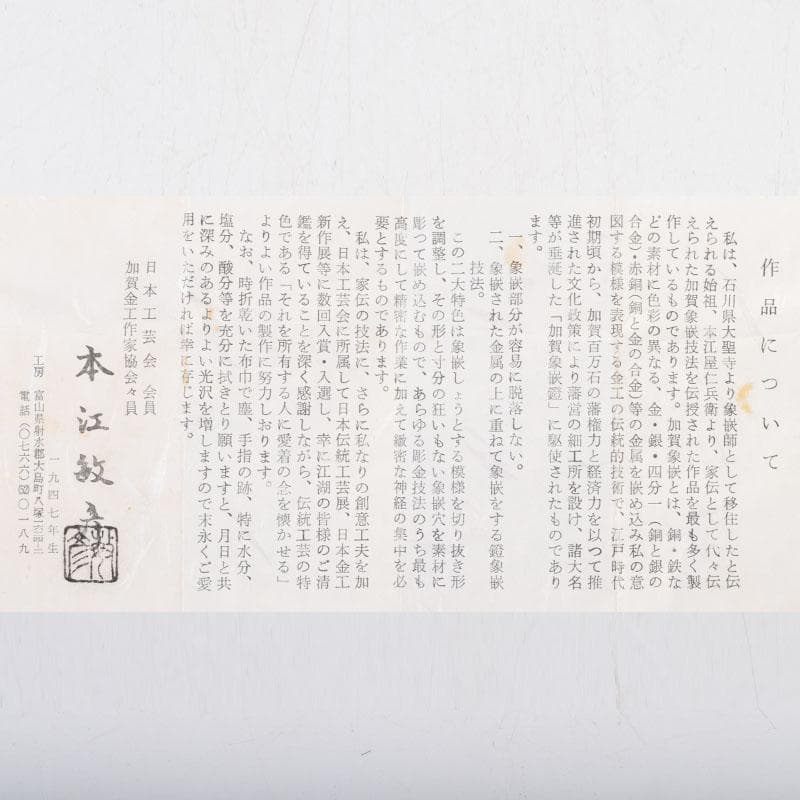 作品について
私は、石川県大聖寺より象嵌師として移住したと伝
えられる始祖、本江屋仁兵衛より、家伝として代々伝
えられた加賀象嵌技法を伝授された作品を最も多く製
作しているものであります。加賀象嵌とは、銅・鉄な
どの素材に色彩の異なる、金・銀・四分一(銅と銀の
合金)・赤銅(銅と金の合金)等の金属を嵌め込み私の意
図する模様を表現する金工の伝統的技術で、江戸時代
初期頃から、加賀百万石の藩権力と経済力を以つて推
進された文化政策により藩営の細工所を設け、諸大名
等が垂涎した「加賀象嵌鐙」に駆使されたものであり
ます。
一、象嵌部分が容易に脱落しない。
二、象嵌された金属の上に重ねて象嵌をする鐙象嵌
技法。
この二大特色は象嵌しょうとする模様を切り抜き形
を調整し、その形と寸分の狂いもない象嵌穴を素材に
彫つて嵌め込むもので、あらゆる彫金技法のうち最も
高度にして精密な作業に加えて緻密な神経の集中を必
要とするものであります。
私は、家伝の技法に、さらに私なりの創意工夫を加
え、日本工芸会に所属して日本伝統工芸展、日本金工
新作展等に数回入賞・入選し、幸に江湖の皆様のご清
鑑を得ていることを深く感謝しながら、伝統工芸の特
色である「それを所有する人に愛着の念を懐かせる」
よりよい作品の製作に努力しおります。
なお、時折乾いた布巾で塵、手指の跡、特に水分、
塩分、酸分等を充分に拭きとり願いますと、月日と共
に深みのあるよりよい光沢を増しますので末永くご愛
用をいただければ幸に存じます。
日本工芸会 会員
加賀金工作家協会々員
本江敏
一九四七年生
工房 富山県射水郡大島町八塚
電話(〇七六六)〇一八九